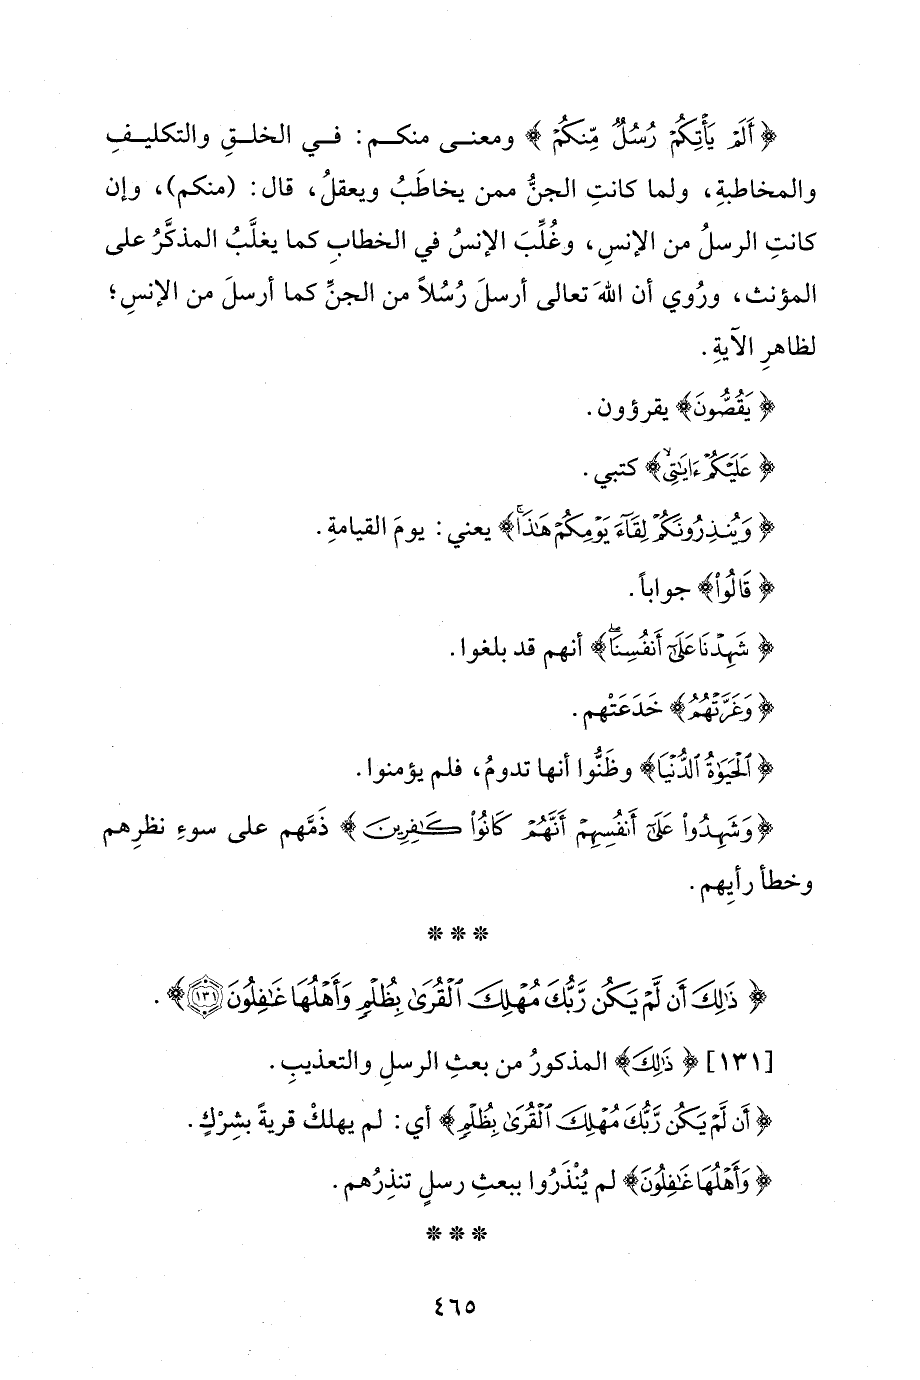 ﴿ أَلَمْ يَأْتِكُمْ رُسُلٌ مِّنكُمْ ﴾ ومعنـى منكـم: فـي الخلـقِ والتكليـفِ
والمخاطبةِ، ولما كانتِ الجنُّ ممن يخاطَبُ ويعقلُ، قال: (منكم)، وإن
كانتِ الرسلُ من الإنسِ، وغُلِّبَ الإنسُ في الخطابِ كما يغلَّبُ المذكَّرُ على
المؤنث، ورُوي أن اللهَ تعالى أرسلَ رُسُلاً من الجنِّ كما أرسلَ من الإنسِ؛
لظاهرِ الآيةِ.
﴿ يَقُصُّونَ﴾ يقرؤون.
﴿ عَلَيْكُمْ ءَايَٰتِيۙ﴾ كتبي.
﴿ وَيُنذِرُونَكُمْ لِقَآءَ يَوْمِكُمْ هَٰذَاۚ﴾ يعني: يومَ القيامةِ.
﴿ قَالُواْ﴾ جواباً.
﴿ شَهِدْنَا عَلَىٰٓ أَنفُسِنَاۖ﴾ أنهم قد بلغوا.
﴿ وَغَرَّتْهُمُ﴾ خَدَعَتْهم.
﴿ ٱلْحَيَوٰةُ ٱلدُّنْيَا﴾ وظَنُّوا أنها تدومُ، فلم يؤمنوا.
﴿ وَشَهِدُواْ عَلَىٰٓ أَنفُسِهِمْ أَنَّهُمْ كَانُواْ كَٰفِرِينَ ﴾ ذَمَّهم على سوءِ نظرِهم
وخطأ رأيِهم.
* * *
﴿ ذَٰلِكَ أَن لَّمْ يَكُن رَّبُّكَ مُهْلِكَ ٱلْقُرَىٰ بِظُلْمٍ وَأَهْلُهَا غَٰفِلُونَ ١٣١﴾.
[١٣١] ﴿ ذَٰلِكَ﴾ المذكورُ من بعثِ الرسلِ والتعذيبِ.
﴿ أَن لَّمْ يَكُن رَّبُّكَ مُهْلِكَ ٱلْقُرَىٰ بِظُلْمٍ﴾ أي: لم يهلكْ قريةً بشِرْكٍ.
﴿ وَأَهْلُهَا غَٰفِلُونَ﴾ لم يُنْذَرُوا ببعثِ رسلٍ تنذِرُهم.
* * *
٤٦٥